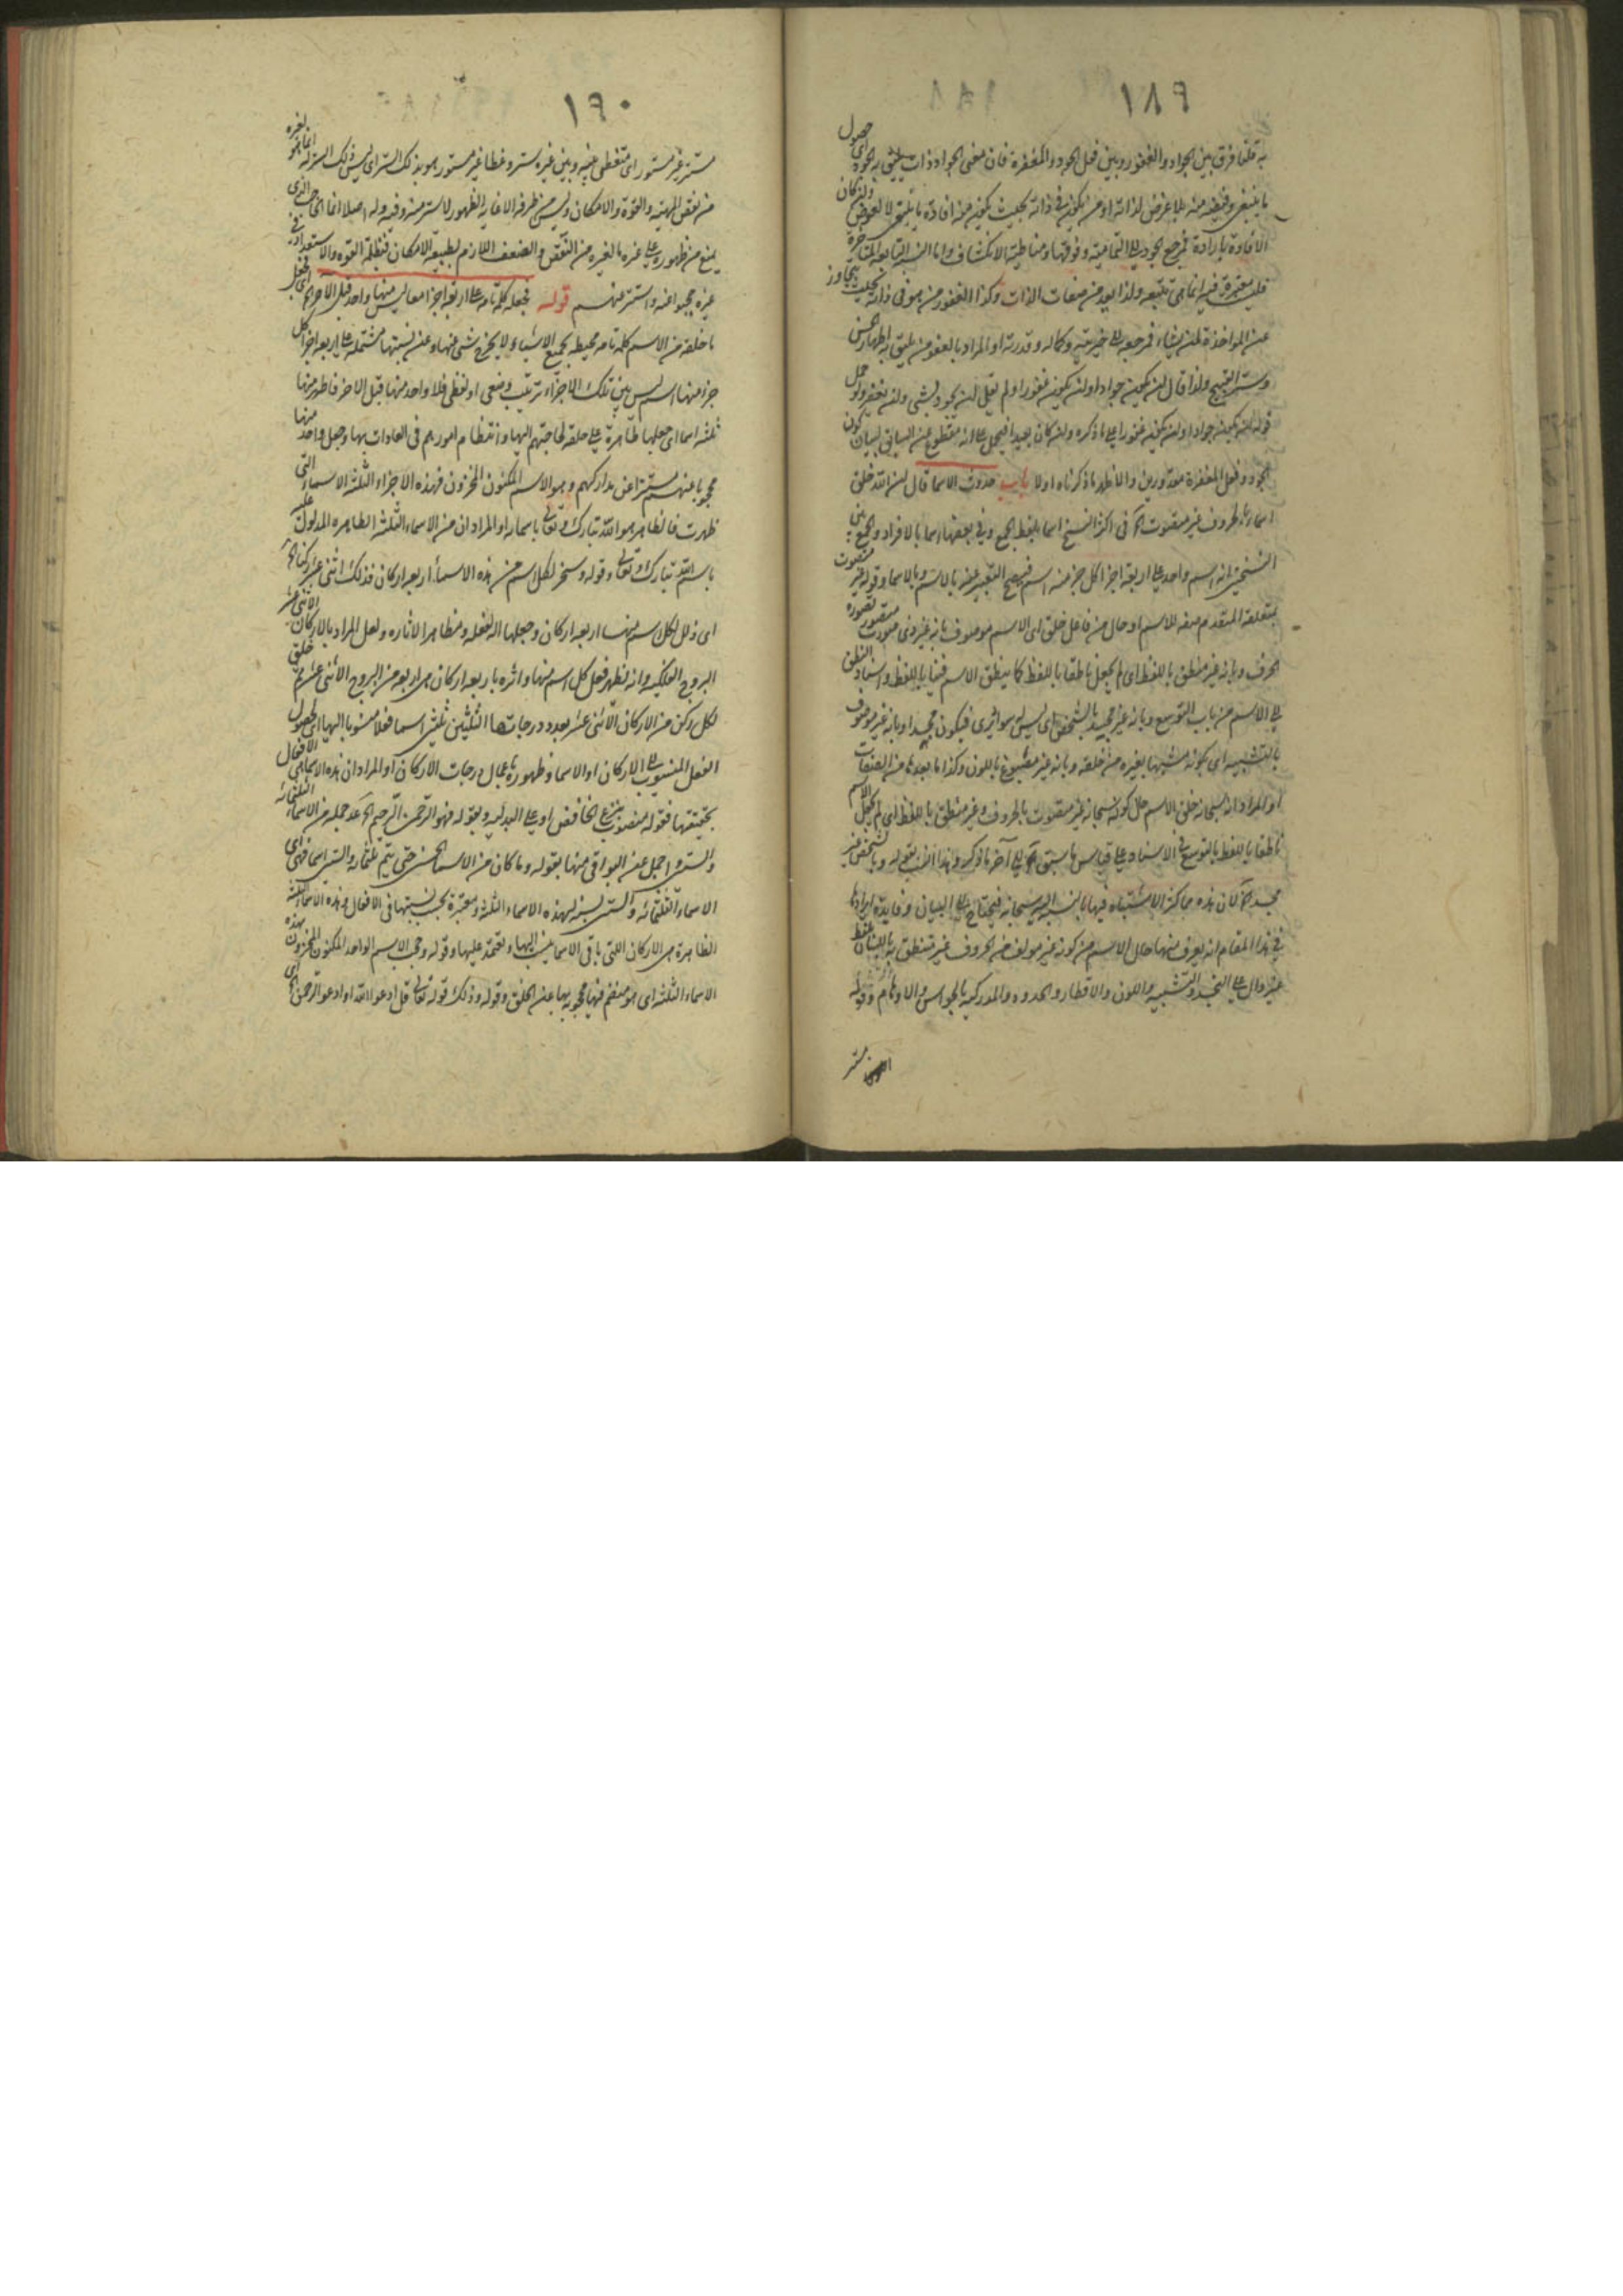 ١٨٩
به قلنا فرق بين الجواد والغفور وبين فعل الجود والمغفرة فان معنى الجواد ذات يليق به الجود اى حصول
ما ينبغى وفيضه منه بلا غرض لذاته او من يكون فى ذاته بحيث يكون منه افادة ما ينبغى لا لعوض وان كان
الافادة بارادة فمرجع الجود الى التمامية وفوقها ومناطية الانكشاف واما النسبة التابعة المتاخرة
فليست معتبرة فيه انما هى تتبعه ولذا يعد من صفات الذات وكذا الغفور من هو فى ذاته بحيث يتجاوز
عن المواخذة لمن يشاء فمرجعه الى خيريته وكماله وقدرته او المراد بالغفور من يليق به اظهار الحسن
وستر القبيح ولذا قال لن يكون جوادا ولن يكون غفورا ولم يقل لن يجود بشى ولن يغفر ولو حمل
قوله لن يكون جوادا ولن يكون غفورا على ما ذكره وان كان بعيدا فيحمل على انه مقطوع عن السابق لبيان كون
الجود وفعل المغفرة مقدورين والاظهر ما ذكرناه اولا باب حدوث الاسما قال ان الله خلق
اسماء بالحروف غير منعوت آه فى اكثر النسخ اسماء بلفظ الجمع وفى بعضها اسما بالافراد والجمع بين
النسختين انه اسم واحد على اربعة اجزا كل جزء منه اسم فيصح التعبير عنه بالاسم وبالاسما وقوله غير منعوت
بمتعلقه المتقدم صفه للاسم او حال من فاعل خلق اى الاسم موصوف بانه غير ذى صوت متصور بصورة
الحرف وبانه غير منطق باللفظ اى لم يجعل ناطقا باللفظ كما ينطق الاسم فينا باللفظ واسناد النطق
الى الاسم من باب التوسع وبانه غير مجسد بالشخص اى ليس له سواد مرئى فيكون مجسدا وبانه غير موصوف
بالتشبيه اى بكونه مشبها بغيره من خلقه وبانه غير مصبوغ باللون وكذا ما بعدها من الصفات
او المراد انه سبحانه خلق الاسم حال كونه سبحانه غير منعوت بالحروف وغير منطق باللفظ اى لم يجعل الاسم
ناطقا باللفظ بالتوسع فى الاسناد على قياس ما سبق آه الى آخر ما ذكره وهذا انسب بقوله وبالشخص غير
مجسد آه لان هذه مما كثر الاشتباه فيها بالنسبة اليه سبحانه فيحتاج الى البيان وفايدة ايرادها
فى هذا المقام انه يعرف منها حال الاسم من كونه غير مولف من الحروف غير منطق به باللسان لفظ
غير دال على التجسد والتشبيه واللون والاقطار والحدود والمدركية بالحواس والاوهام وقوله
مستتر
١٩٠
مستتر غير مستور اى متغطى بينه وبين غيره ستر وغطا غير مستور هو بذلك الستر اى ليس ذلك الستر له انما هو لغيره
من نقص المهية والقوة والامكان وليس من طرفه الا غاية الظهور لا ستر منه وفيه وله اصلا انما الحاجب الذى
يمنع من ظهوره على غيره ما لغيره من النقص والضعف اللازم لطبيعة الامكان فظلمة القوة والاستعداد فى
غيره حجبوا عنه واستتر منهم قوله فجعله كلمة تامة على اربعة اجزا معا ليس منها واحد قبل الآخر اى فجعل
ما خلقه من الاسم كلمة تامه محيطه بجميع الاشياء ولا يخرج شى منها وعن نسبتها مشتملة على اربعة اجزا كل
جزء منها اسم ليس بين تلك الاجزاء ترتيب وضعى او لفظى فلا واحد منها قبل الاخر فاظهر منها
ثلثه اسما اى جعلها ظاهرة على خلقه لحاجتهم اليها وانتظام امورهم فى العادات بها وجعل واحدا منها
محجوبا عنهم مستترا عن مداركهم وهو الاسم المكنون المخزون فهذه الاجزاء الثلثة الاسماء التى
ظهرت فالظاهر هو الله تبارك وتعالى باسمائه او المراد ان من الاسماء الثلثة الظاهره المدلول عليه
باسم الله تبارك وتعالى وقوله وسخر لكل اسم من هذه الاسماء اربعة اركان فذلك اثنى عشر ركنا آه
اى ذلل لكل اسم منها اربعة اركان وجعلها آلة لفعله ومظاهر لاثاره ولعل المراد بالاركان الاثنى عشر
البروج الفلكيه وانه لظهر فعل كل اسم منها واثره باربعة اركان هى اربعة من البروج الاثنى عشر ثم خلق
لكل ركن من الاركان الاثنى عشر بعدد درجاتها الثلثين ثلثين اسما فعلا منسوبا اليها اى لحصول
الفعل المنسوب الى الاركان او الاسما وظهوره باعمال درجات الاركان او المراد ان هذه الاسما هى الافعال
بحقيقتها فقوله منصوب بنزع الخافض او على البدلية وبقوله فهو الرحمن الرحيم آه عد جمله من الاسماء الثلثمائه
والستين واجمل عن البواقى منها بقوله وما كان من الاسماء الحسنى حتى يتم ثلثمائه والستين اسما فهى اى
الاسماء الثلثمائه والستين نسبة لهذه الاسماء الثلثة ومعتبرة بحسب نسبتها فى الافعال وهذه الاسماء الثلثه
الظاهرة هى الاركان التى باقى الاسما ينسب اليها ويعتمد عليها وقوله وحجب الاسم الواحد المكنون المخزون بهذه
الاسماء الثلثه اى هو منضم فيها محجوب بها عن الخلق وقوله وذلك قوله تعالى قل ادعوا الله او ادعوا الرحمن آه اى